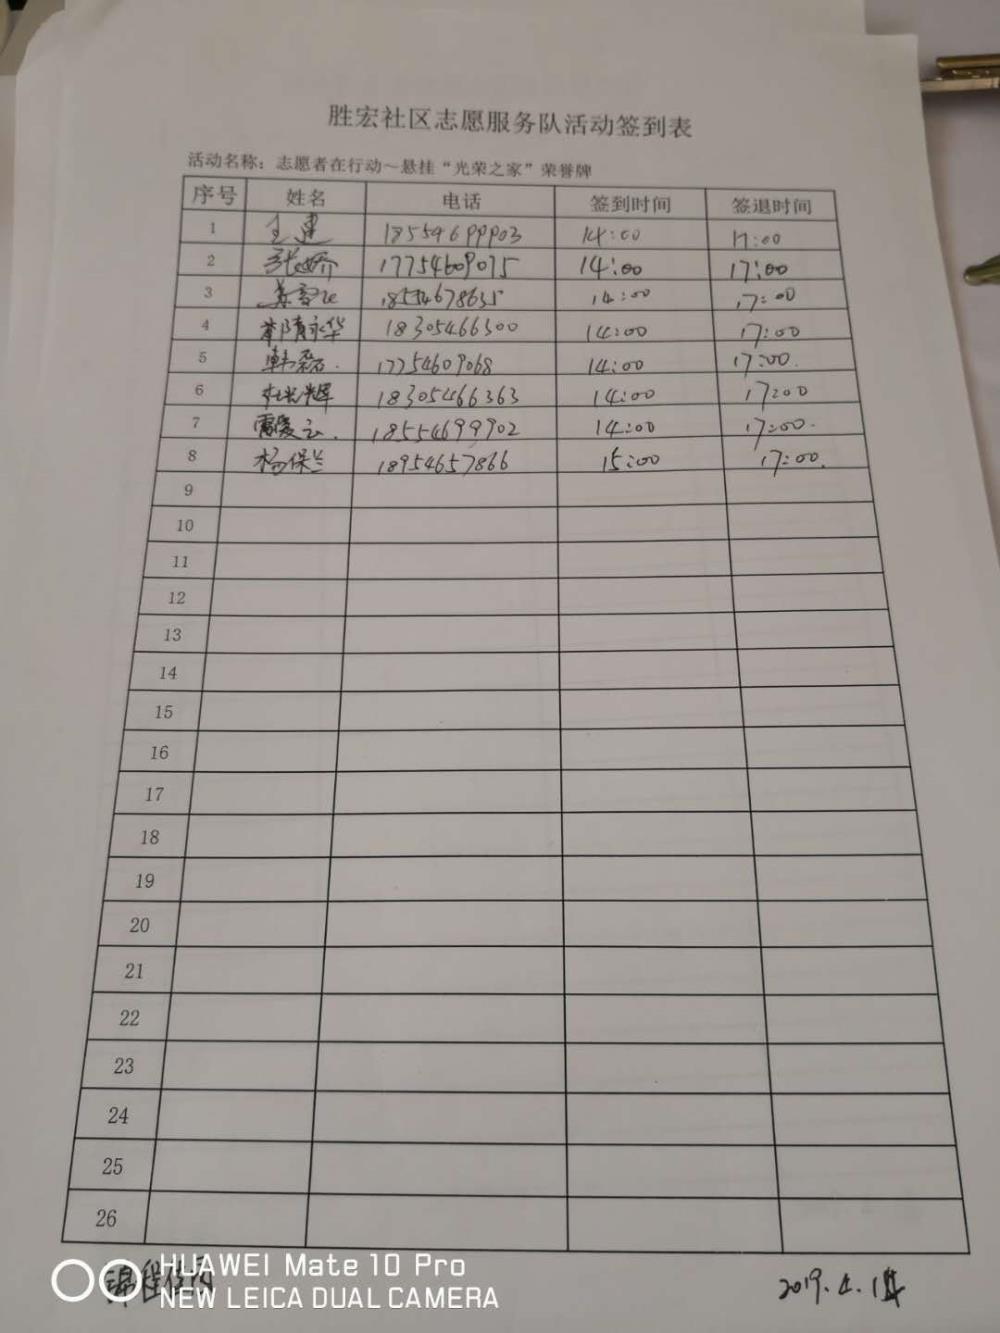 胜宏社区志愿服务队活动签到表
活动名称：志愿者在行动～悬挂“光荣之家”荣誉牌
序号 姓名 电话 签到时间 签退时间
1 王建 14:00 17:00
2 张娇 17754609075 14:00 17:00
3 18554678635 14:00 17:00
4 永华 18305466300 14:00 17:00
5 韩磊. 17754609068 14:00 17:00.
6 杜光辉 18305466363 14:00 17:00
7 云. 18554699902 14:00 17:00.
8 杨保兰 18954657866 15:00 17:00.
9
10
11
12
13
14
15
16
17
18
19
20
21
22
23
24
25
26
锦程
HUAWEI Mate 10 Pro
NEW LEICA DUAL CAMERA
2019.4.